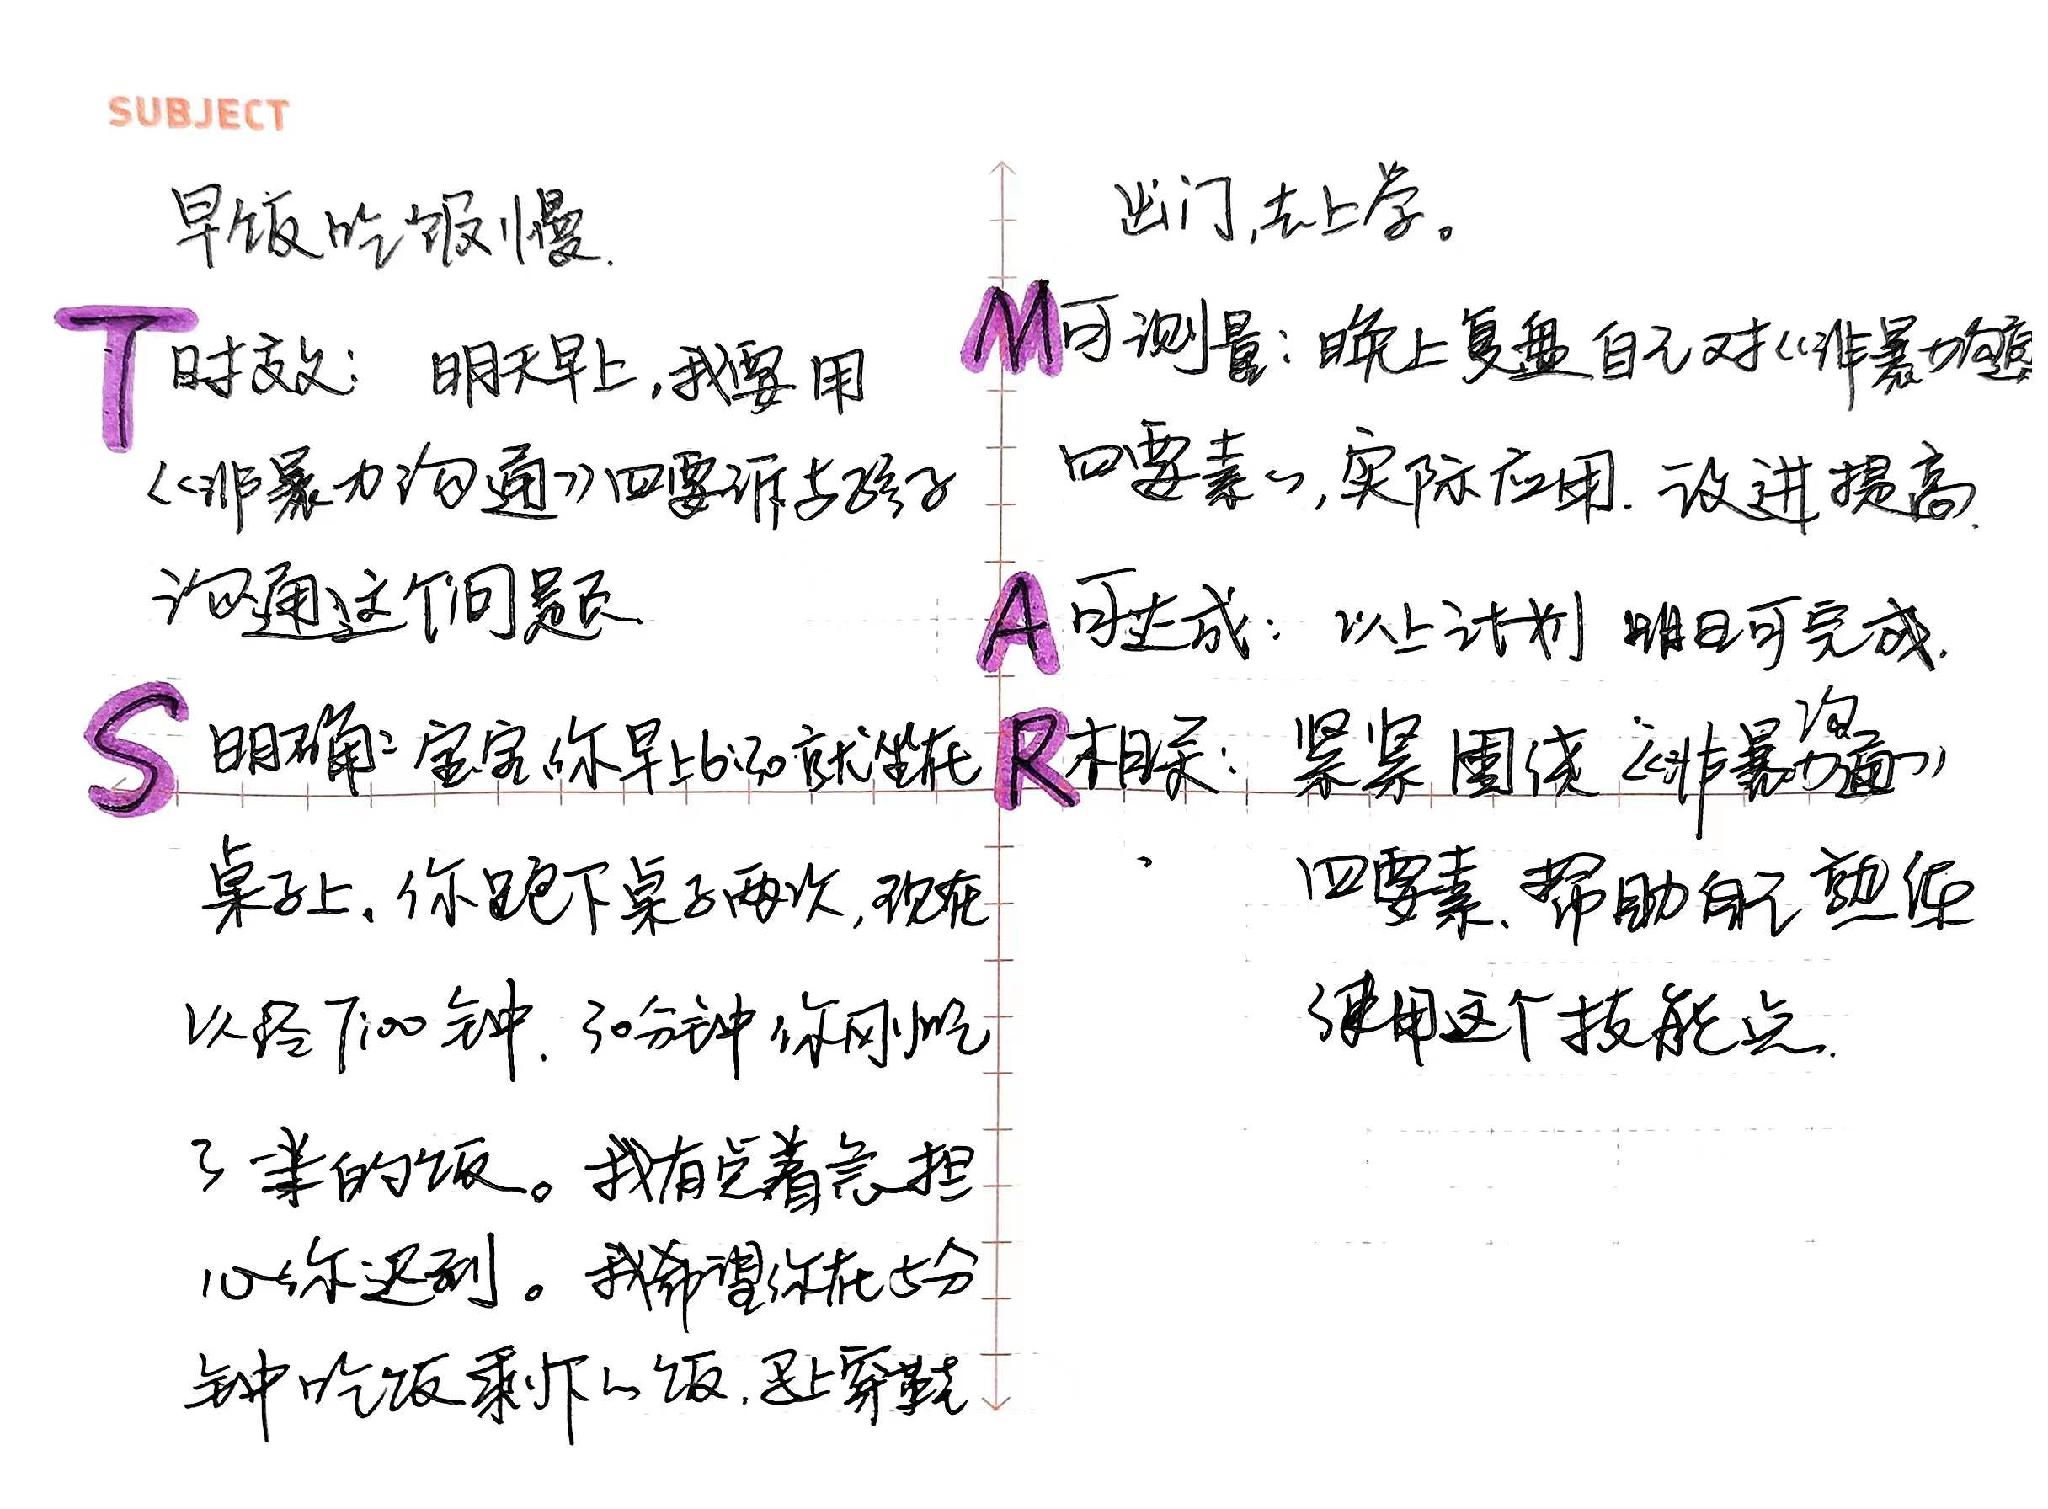 SUBJECT
早饭吃饭慢.
T 时效：明天早上,我要用
《非暴力沟通》四要诉与孩子
沟通这个问题.
S 明确：宝宝你早上6:30就坐在
桌子上.你跑下桌子两次,现在
以经7:00钟.30分钟你刚吃
了一半的饭。我有点着急担
心你迟到。我希望你在5分
钟吃饭剩下的饭.马上穿鞋
出门,去上学。
M 可测量：晚上复盘自己对《非暴力沟通
四要素》,实际应用.改进提高.
A 可达成：以上计划明日可完成.
R 相关：紧紧围绕《非暴力沟通》
四要素.帮助自己熟练
使用这个技能点.